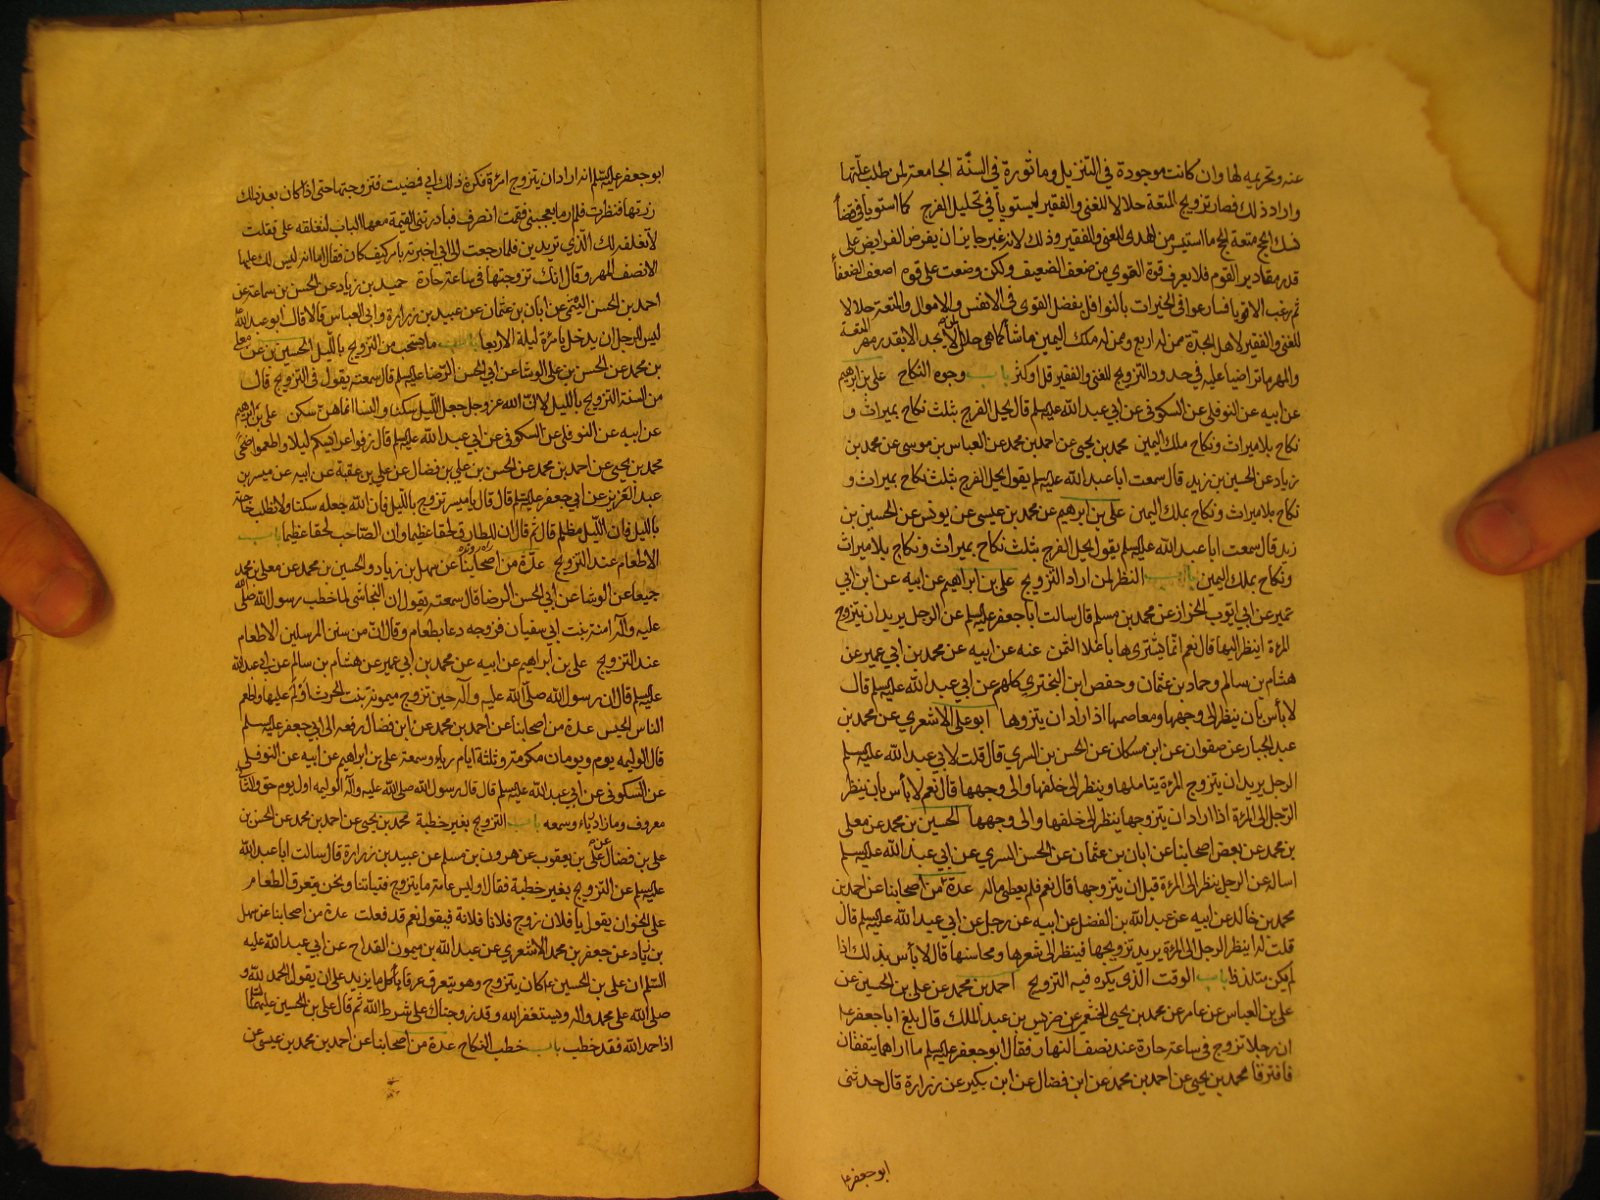 عنه وتحريمه لها وان كانت موجودة في التنزيل وماثورة في السنة الجامعة لمن طلب علتها
واراد ذلك فصار تزويج المتعة حلالا للغني والفقير ليستويا في تحليل الفرج كما استويا في قضاء
نسك الحج متعة الحج فما استيسر من الهدي للغني والفقير وذلك لانه غير جايز ان يفرض الفرايض على
قدر مقادير القوم فلا يعرف قوة القوي من ضعف الضعيف ولكن وضعت على قوم اضعف الضعفا
ثم رغب الاقويا فسارعوا في الخيرات بالنوافل بفضل القوى في الانفس والاموال والمتعة حلالا
للغني والفقير لاهل الجدة ممن له اربع وممن له ملك اليمين ماشا كما هي حلال لمن لا يجد الا بقدر مهر المتعة
والمهر ما تراضيا عليه في حدود التزويج للغني والفقير قل او كثر باب وجوه النكاح علي بن ابرهيم
عن ابيه عن النوفلي عن السكوني عن ابي عبد الله عليه السلم قال يحل الفرج بثلث نكاح بميراث و
نكاح بلا ميراث ونكاح ملك اليمين محمد بن يحيى عن احمد بن محمد عن العباس بن موسى عن محمد بن
زياد عن الحسين بن زيد قال سمعت ابا عبد الله عليه السلم يقول يحل الفرج بثلث نكاح بميراث و
نكاح بلا ميراث ونكاح بملك اليمين علي بن ابرهيم عن محمد بن عيسى عن يونس عن الحسين بن
زيد قال سمعت ابا عبد الله عليه السلم يقول يحل الفرج بثلث نكاح بميراث ونكاح بلا ميراث
ونكاح بملك اليمين باب النظر لمن اراد التزويج علي بن ابراهيم عن ابيه عن ابن ابي
عمير عن ابي ايوب الخزاز عن محمد بن مسلم قال سالت ابا جعفر عليه السلم عن الرجل يريد ان يتزوج
المرءة اينظر اليها قال نعم انما يشتريها باغلا الثمن عنه عن ابيه عن محمد بن ابي عمير عن
هشام بن سالم وحماد بن عثمان وحفص ابن البختري كلهم عن ابي عبد الله عليه السلم قال
لا بأس بان ينظر الى وجهها ومعاصمها اذا اراد ان يتزوجها ابو علي الاشعري عن محمد بن
عبد الجبار عن صفوان عن ابن مسكان عن الحسن بن السري قال قلت لابي عبد الله عليه السلم
الرجل يريد ان يتزوج المرءة يتاملها وينظر الى خلفها والى وجهها قال نعم لا بأس بان ينظر
الرجل الى المرءة اذا اراد ان يتزوجها ينظر الى خلفها والى وجهها الحسين بن محمد عن معلى
بن محمد عن بعض اصحابنا عن ابان بن عثمان عن الحسن السري عن ابي عبد الله عليه السلم
اساله عن الرجل ينظر الى المرءة قبل ان يتزوجها قال نعم فلم يعطي ماله عدة من اصحابنا عن احمد بن
محمد بن خالد عن ابيه عن عبد الله بن الفضل عن ابيه عن رجل عن ابي عبد الله عليه السلم قال
قلت له اينظر الرجل الى المرءة يريد تزويجها فينظر الى شعرها ومحاسنها قال لا بأس بذلك اذا
لم يكن متلذذا باب الوقت الذي يكره فيه التزويج احمد بن محمد عن علي بن الحسين عن
علي بن العباس عن عامر عن محمد بن يحيى الخثعمي عن ضريس بن عبد الملك قال بلغ ابا جعفر ع
ان رجلا تزوج في ساعة حارة عند نصف النهار فقال ابو جعفر عليه السلم ما اراهما يتفقان
فافترقا محمد بن يحيى عن احمد بن محمد عن ابن فضال عن ابن بكير عن زرارة قال حدثني
ابو جعفر ع
ابو جعفر عليه السلم انه اراد ان يتزوج امرءة فكره ذلك ابي فمضيت فتزوجتها حتى اذا كان بعد ذلك
زرتها فنظرت فلم ار ما يعجبني فقمت انصرف فبادرتني القيمة معها الباب لتغلقه علي فقلت
لا تغلقه لك الذي تريدين فلما رجعت الى ابي اخبرته بالامر كيف كان فقال اما انه ليس لك عليها
الا نصف المهر وقال انك تزوجتها في ساعة حارة حميد بن زياد عن الحسن بن سماعة عن
احمد بن الحسن الميثمي عن ابان بن عثمان عن عبيد بن زرارة وابي العباس قالا قال ابو عبد الله
ليس للرجل ان يدخل بامرءة ليلة الاربعا باب ما يستحب من التزويج بالليل الحسين بن محمد عن معلى
بن محمد عن الحسن بن علي الوشا عن ابي الحسن الرضا عليه السلم قال سمعته يقول في التزويج قال
من السنة التزويج بالليل لان الله عز وجل جعل الليل سكنا والنسا انما هن سكن علي بن ابرهيم
عن ابيه عن النوفلي عن السكوني عن ابي عبد الله عليه السلم قال زفوا عرايسكم ليلا واطعموا ضحى
محمد بن يحيى عن احمد بن محمد عن الحسن بن علي بن فضال عن علي بن عقبة عن ابيه عن ميسر بن
عبد العزيز عن ابي جعفر عليه السلم قال قال يا ميسر تزوج بالليل فان الله جعله سكنا ولا تطلب حاجة
بالليل فان الليل مظلم قال ثم قال ان للطارق لحقا عظيما وان للصاحب لحقا عظيما باب
الاطعام عند التزويج عدة من اصحابنا عن سهل بن زياد والحسين بن محمد عن معلى بن محمد
جميعا عن الوشا عن ابي الحسن الرضا قال سمعته يقول ان النجاشي لما خطب رسول الله صلى الله
عليه وآله امنة بنت ابي سفيان فزوجه دعا بطعام وقال ان من سنن المرسلين الاطعام
عند التزويج علي بن ابراهيم عن ابيه عن محمد بن ابي عمير عن هشام بن سالم عن ابي عبد الله
عليه السلم قال ان رسول الله صلى الله عليه وآله حين تزوج ميمونة بنت الحرث اولم عليها واطعم
الناس الحيس عدة من اصحابنا عن احمد بن محمد عن ابن فضال رفعه الى ابي جعفر عليه السلم
قال الوليمه يوم ويومان مكرمة وثلثة ايام رياء وسمعة علي بن ابراهيم عن ابيه عن النوفلي
عن السكوني عن ابي عبد الله عليه السلم قال قال رسول الله صلى الله عليه وآله الوليمه اول يوم حق والثاني
معروف وما زاد رياء وسمعه باب التزويج بغير خطبة محمد بن يحيى عن احمد بن محمد عن الحسن بن
علي بن فضال عن علي بن يعقوب عن هرون بن مسلم عن عبيد بن زرارة قال سالت ابا عبد الله
عليه السلم عن التزويج بغير خطبة فقال اوليس عامة ما يتزوج فتياتنا ونحن نتعرق الطعام
على الخوان يقول يا فلان زوج فلانا فلانة فيقول نعم قد فعلت عدة من اصحابنا عن سهل
بن زياد عن جعفر بن محمد الاشعري عن عبد الله بن ميمون القداح عن ابي عبد الله عليه
السلم ان علي بن الحسين ع كان يتزوج وهو يتعرق عرقا يأكل ما يزيد على ان يقول الحمد لله و
صلى الله على محمد واله ويستغفر الله وقد زوجناك على شرط الله ثم قال علي بن الحسين عليهما
اذا حمد الله فقد خطب باب خطب النكاح عدة من اصحابنا عن احمد بن محمد بن عيسى عن